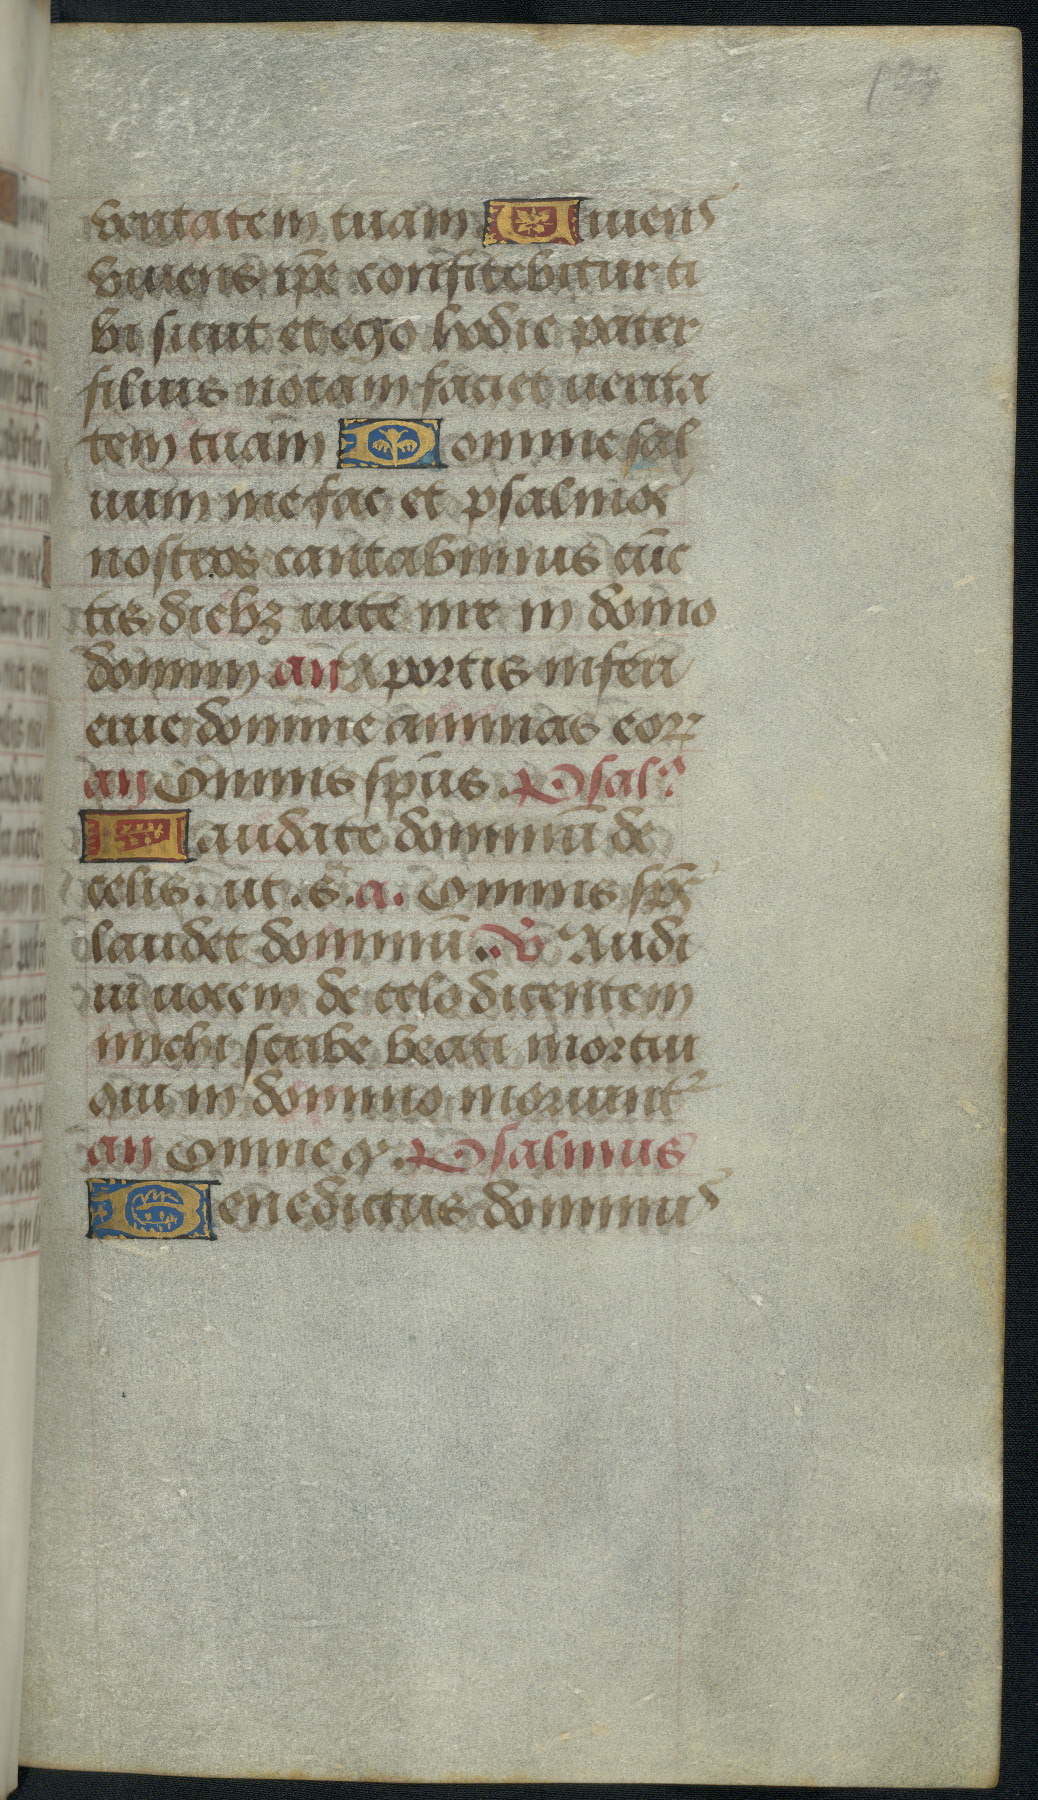 veritatem tuam Viuens
viuens ip̄e confitebitur ti
bi sicut et ego hodie pater
filius notam faciet uerita
tem tuam Domine sal
uum me fac et psalmos
nostros cantabimus cūc
tis diebꝫ uite nr̄e in domo
domini an A portis inferi
erue domine animas eoꝝ
an Omnis sp̄us. Psal
Laudate dominū de
celis. ut. s. a. Omnis sp̄s
laudet dominū. ℣ Audi
ui uocem de celo dicentem
michi scribe beati mortui
qui in domino moriunt᷑
an Omne q. Psalmus
Benedictus dominus